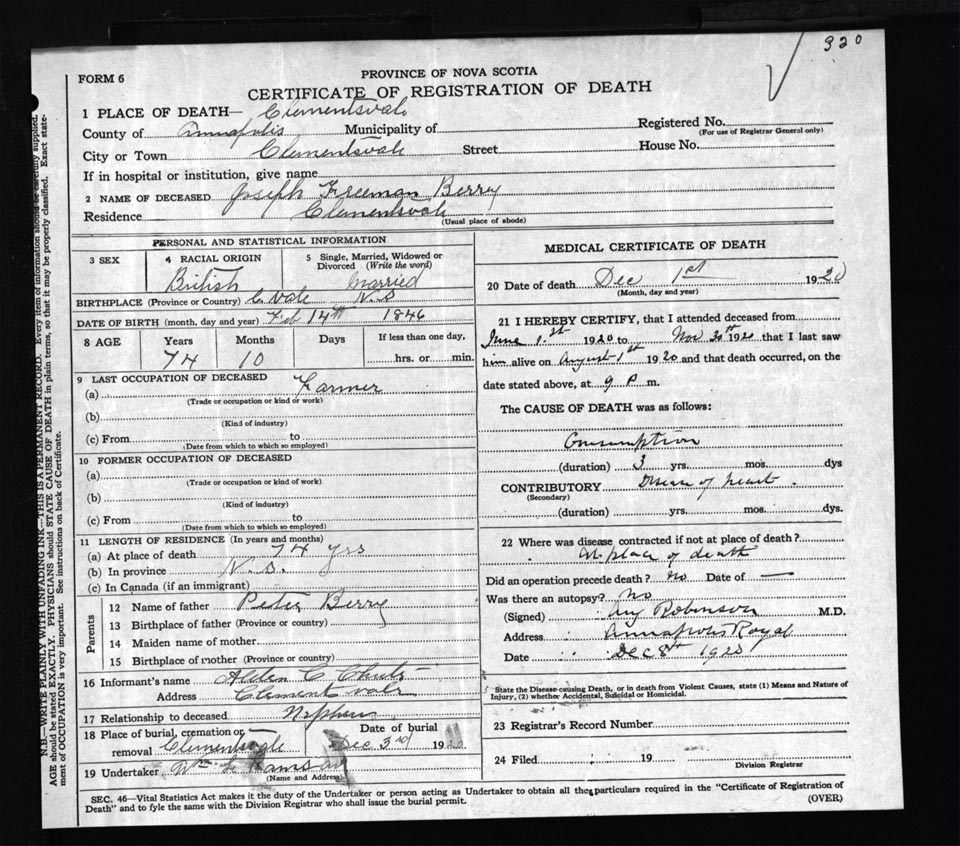 320
FORM 6
PROVINCE OF NOVA SCOTIA
CERTIFICATE OF REGISTRATION OF DEATH
1 PLACE OF DEATH— Clementsvale
County of Annapolis Municipality of Registered No.
(For use of Registrar General only)
City or Town Clementsvale Street House No.
If in hospital or institution, give name
2 NAME OF DECEASED Joseph Freeman Berry
Residence Clementsvale
(Usual place of abode)
PERSONAL AND STATISTICAL INFORMATION
3 SEX 4 RACIAL ORIGIN 5 Single, Married, Widowed or Divorced (Write the word)
British Married
BIRTHPLACE (Province or Country) C. Vale N.S
DATE OF BIRTH (month, day and year) Feb 14th 1846
8 AGE Years Months Days If less than one day,
74 10 hrs. or min.
9 LAST OCCUPATION OF DECEASED
(a) Farmer
(Trade or occupation or kind of work)
(b)
(Kind of industry)
(c) From to
(Date from which to which so employed)
10 FORMER OCCUPATION OF DECEASED
(a)
(Trade or occupation or kind of work)
(b)
(Kind of industry)
(c) From to
(Date from which to which so employed)
11 LENGTH OF RESIDENCE (In years and months)
(a) At place of death 74 yrs
(b) In province N.S.
(c) In Canada (if an immigrant)
Parents
12 Name of father Peter Berry
13 Birthplace of father (Province or country)
14 Maiden name of mother
15 Birthplace of mother (Province or country)
16 Informant's name Alden C Chute
Address Clementsvale
17 Relationship to deceased Nephew
18 Place of burial, cremation or removal Clementsvale Date of burial Dec 3rd 19
19 Undertaker Wm L Ramsay
(Name and Address)
MEDICAL CERTIFICATE OF DEATH
20 Date of death Dec 1st 1920
(Month, day and year)
21 I HEREBY CERTIFY, that I attended deceased from
June 1st 1920 to Nov 30th 1920 that I last saw
him alive on August 1st 1920 and that death occurred, on the
date stated above, at 9 P m.
The CAUSE OF DEATH was as follows:
Consumption
(duration) 3 yrs. mos. dys
CONTRIBUTORY Disease of heart.
(Secondary)
(duration) yrs. mos. dys.
22 Where was disease contracted if not at place of death?
At place of death
Did an operation precede death? No Date of —
Was there an autopsy? No
(Signed) Robinson M.D.
Address Annapolis Royal
Date Dec 8th 1920
State the Disease causing Death, or in death from Violent Causes, state (1) Means and Nature of
Injury, (2) whether Accidental, Suicidal or Homicidal.
23 Registrar's Record Number
24 Filed 19
Division Registrar
SEC. 46—Vital Statistics Act makes it the duty of the Undertaker or person acting as Undertaker to obtain all the particulars required in the "Certificate of Registration of
Death" and to fyle the same with the Division Registrar who shall issue the burial permit.
(OVER)
N.B.—WRITE PLAINLY WITH UNFADING INK—THIS IS A PERMANENT RECORD. Every item of information should be carefully supplied.
AGE should be stated EXACTLY. PHYSICIANS should STATE CAUSE OF DEATH in plain terms, so that it may be properly classified. Exact state-
ment of OCCUPATION is very important. See instructions on back of Certificate.